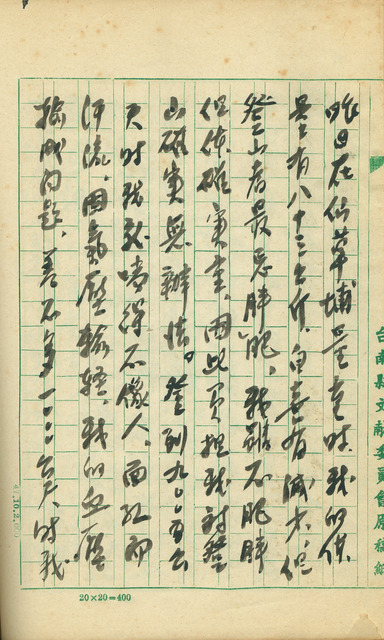 昨日在仙草埔量重時，我的体
量有八十三公斤，自喜有減少，但
登山者最忌肥胖，我雖不肥胖
但体確實重，因此負担我對登
山確實無辦法。登到九〇〇百公
尺時我就喘得不像人，面紅而
汗流，因氣壓較輕，我的血壓
變成問題，差不多一〇〇〇公尺時我
台南縣文獻委員會原稿紙
20×20=400